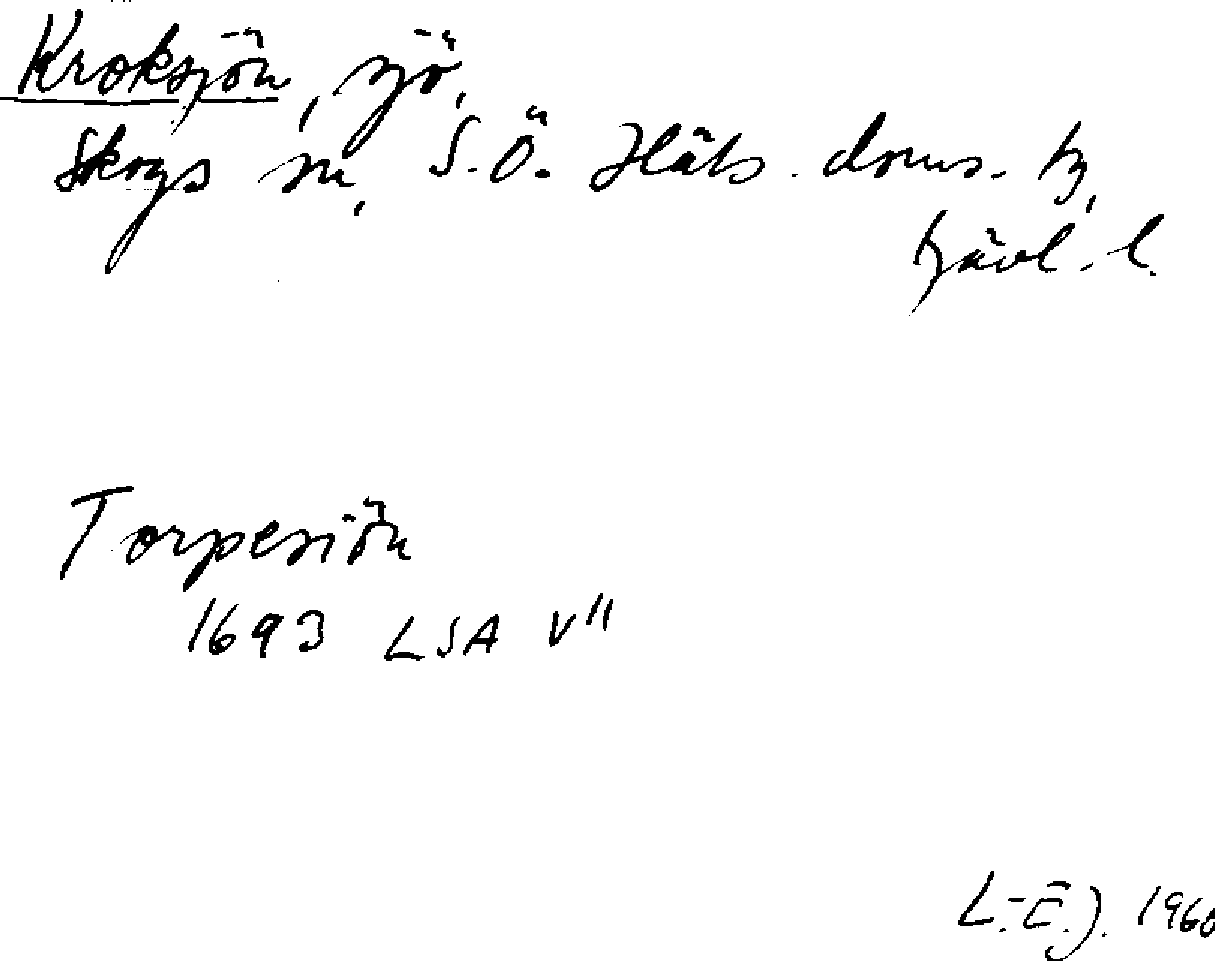 Kroksjön, sjö,
Skogs sn, S.Ö. Häls. doms. tg,
Gävl. l.
Torpesiön
1693 LSA V"
L.-E. J. 1960